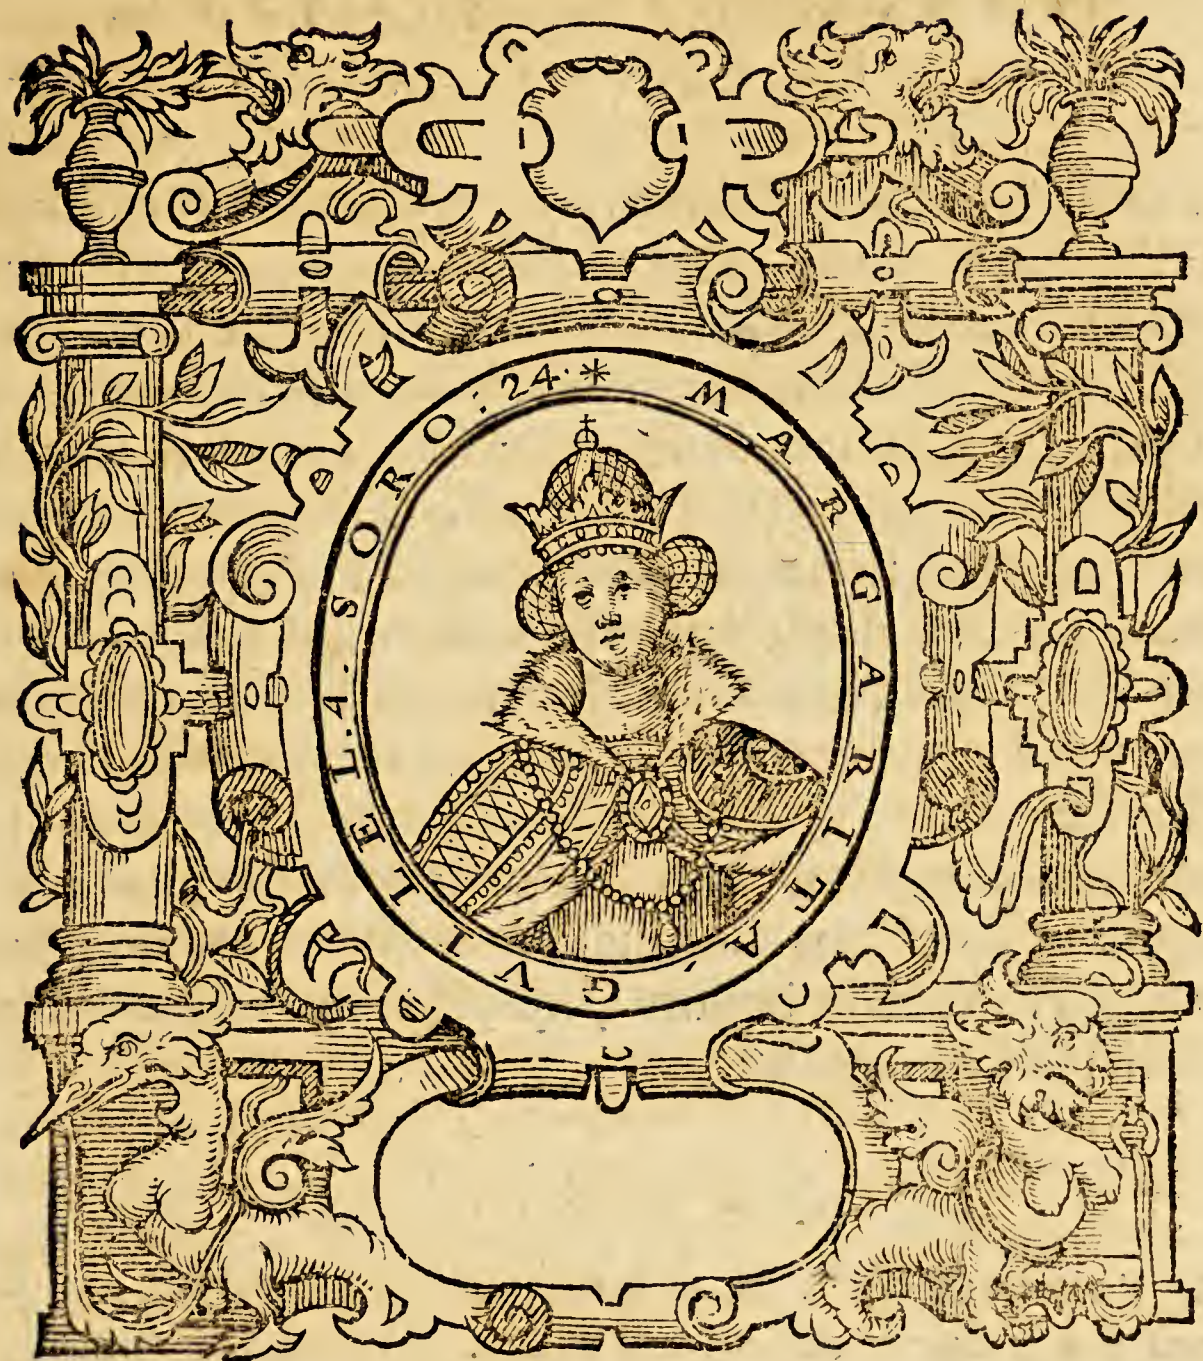 * MARGARITA´ GVILIEL.4. SORO: 24.